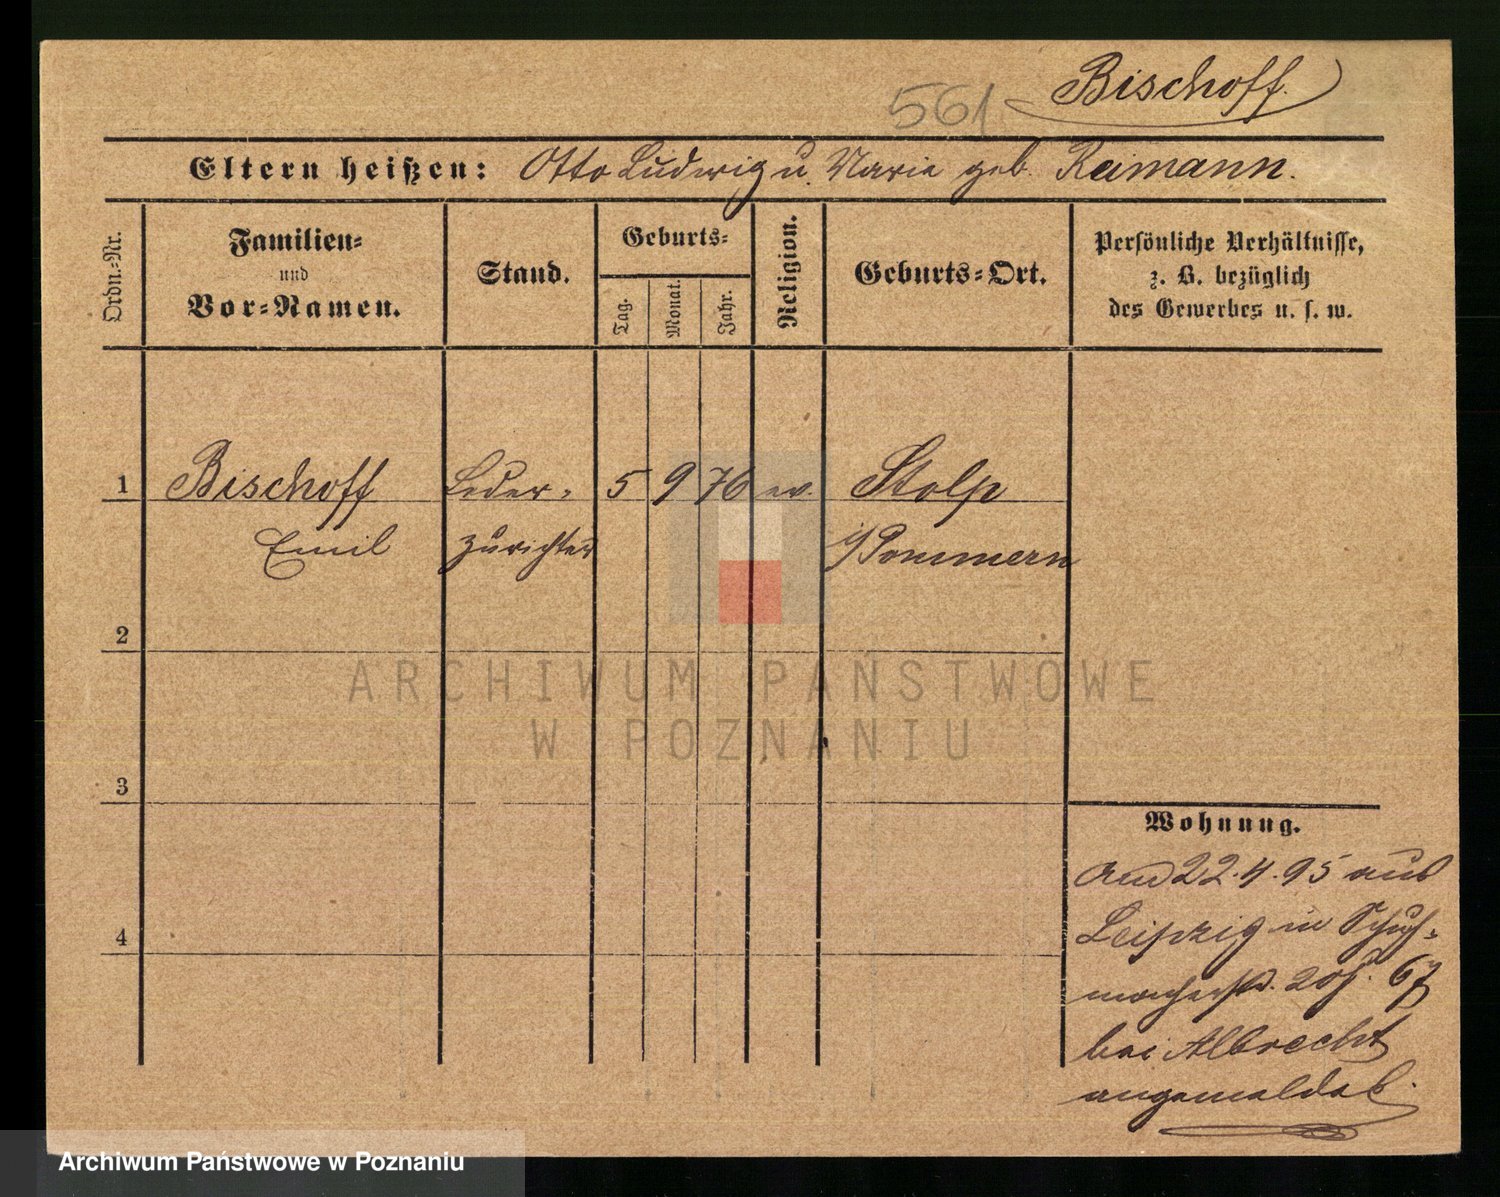 561 Bischoff.
Eltern heißen: Otto Ludwig u. Marie geb. Reimann.
Ordn.=Nr.
Familien=
und
Vor=Namen.
Stand.
Geburts=
Tag.
Monat.
Jahr.
Religion.
Geburts=Ort.
Persönliche Verhältnisse,
z. B. bezüglich
des Gewerbes u. s. w.
1 Bischoff Leder= 5 9 76 ev. Stolp
Emil zurichter i/Pommern
2
3
4
Wohnung.
Am 22.4.95 aus
Leipzig in Schuh=
macherstr. 67
bei Albrecht
angemeldet.
ARCHIWUM PAŃSTWOWE
W POZNANIU
Archiwum Państwowe w Poznaniu